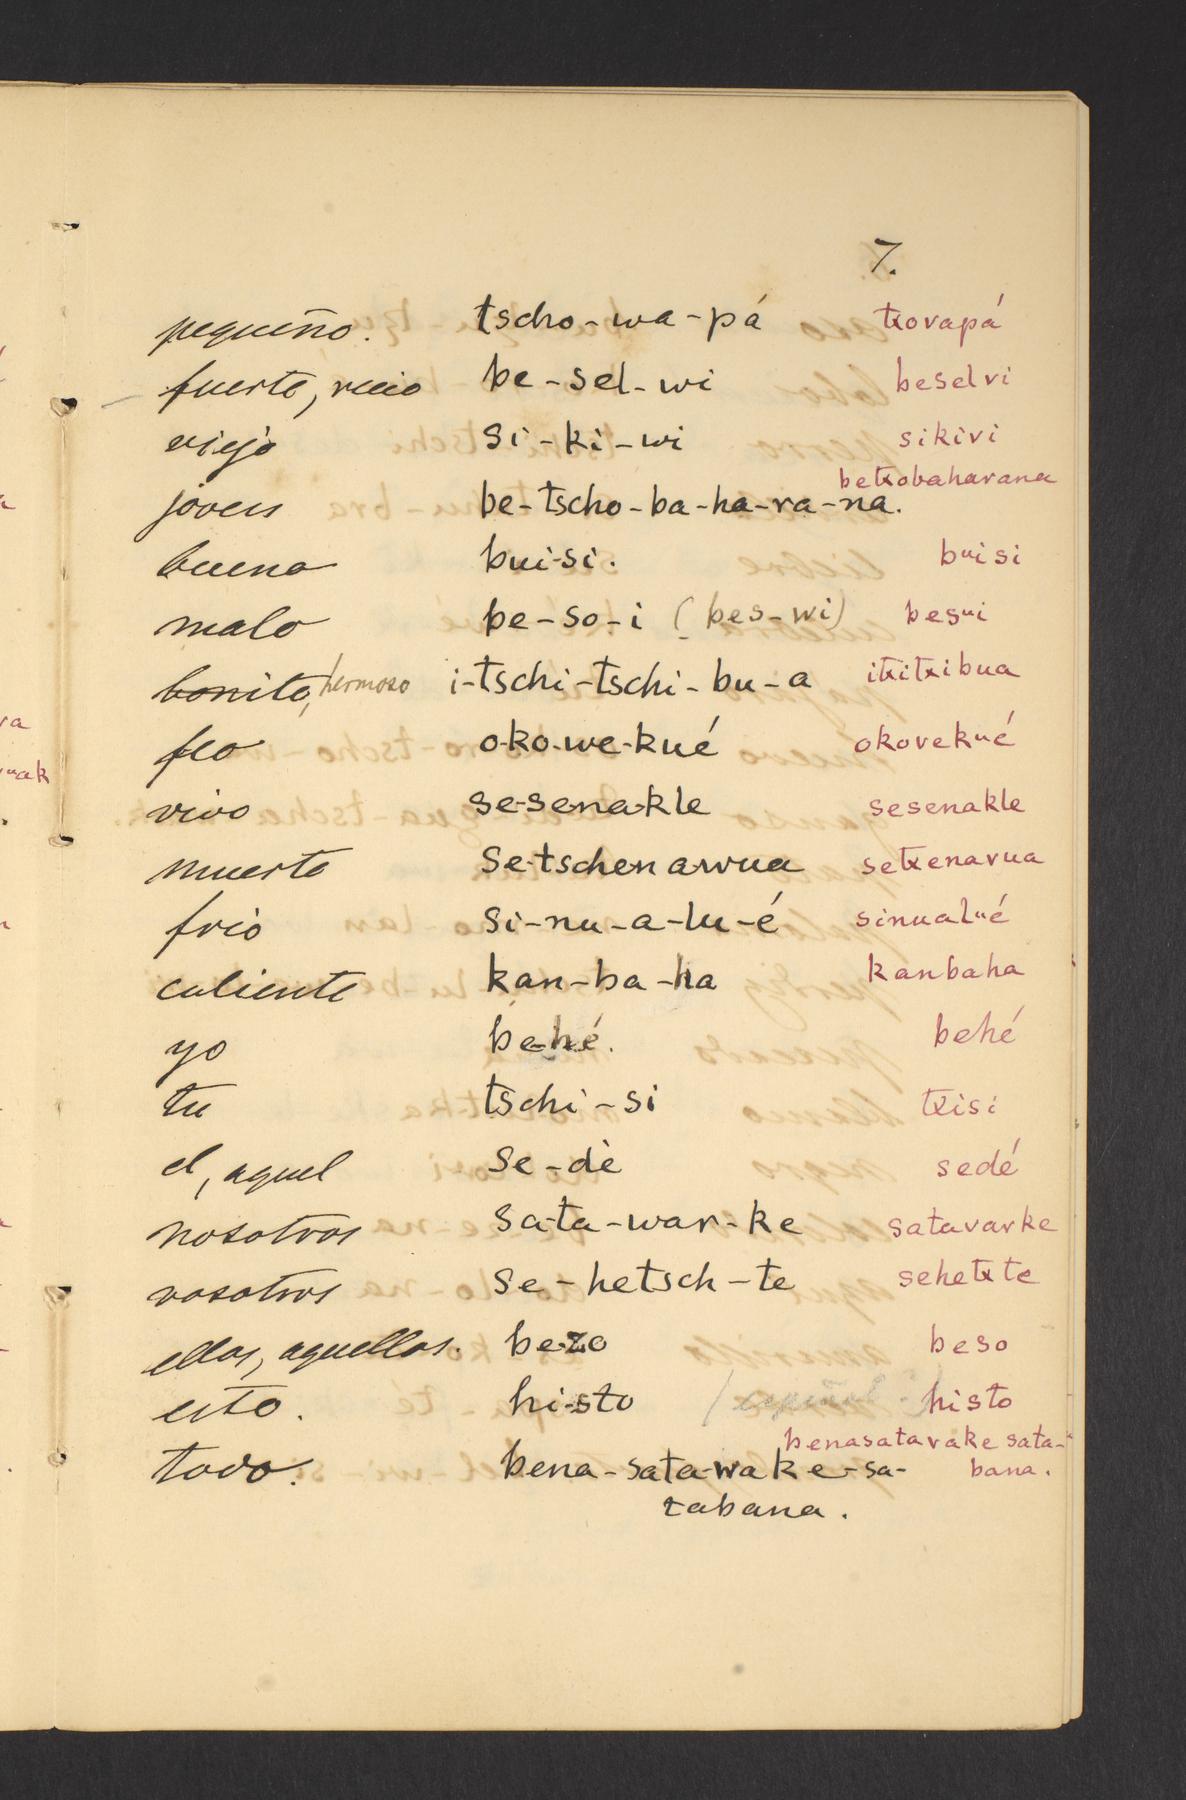 7.
pequeño. tscho-wa-pá txovapá
fuerte, recio be-sel-wi beselvi
viejo si-ki-wi sikivi
betxobaharana
joven be-tscho-ba-ha-ra-na.
bueno bui-si. buisi
malo be-so-i (bes-wi) besui
bonito, hermoso i-tschi-tschi-bu-a itxitxibua
feo o-ko-we-kué okovekué
vivo se-se-na-kle sesenakle
muerto se-tschen awua setxenavua
frio si-nu-a-lu-é sinualué
caliente kan-ba-ha kanbaha
yo be-hé. behé
tu tschi-si txisi
el, aquel se-dè sedé
nosotros sa-ta-war-ke satavarke
vosotros se-hetsch-te sehetxte
ellos, aquellos. be-zo beso
esto. hi-sto (español?) histo
benasatavake sata-
todo. bena-sata-wake-sa- bana.
tabana.